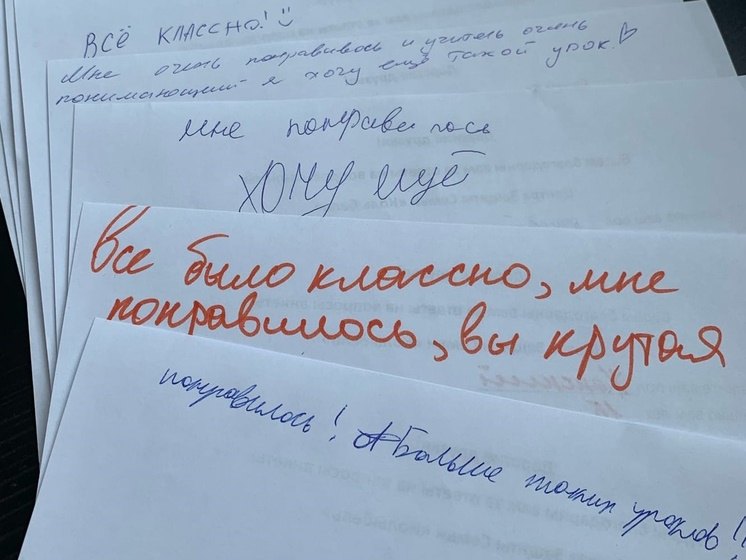 ВСЁ КЛАССНО!
Мне очень понравилось и учитель очень
понимающий я хочу ещё такой урок.
мне понравилось
хочу ещё
Все было классно, мне
понравилось, вы крутая
понравилось! Больше таких уроков!!